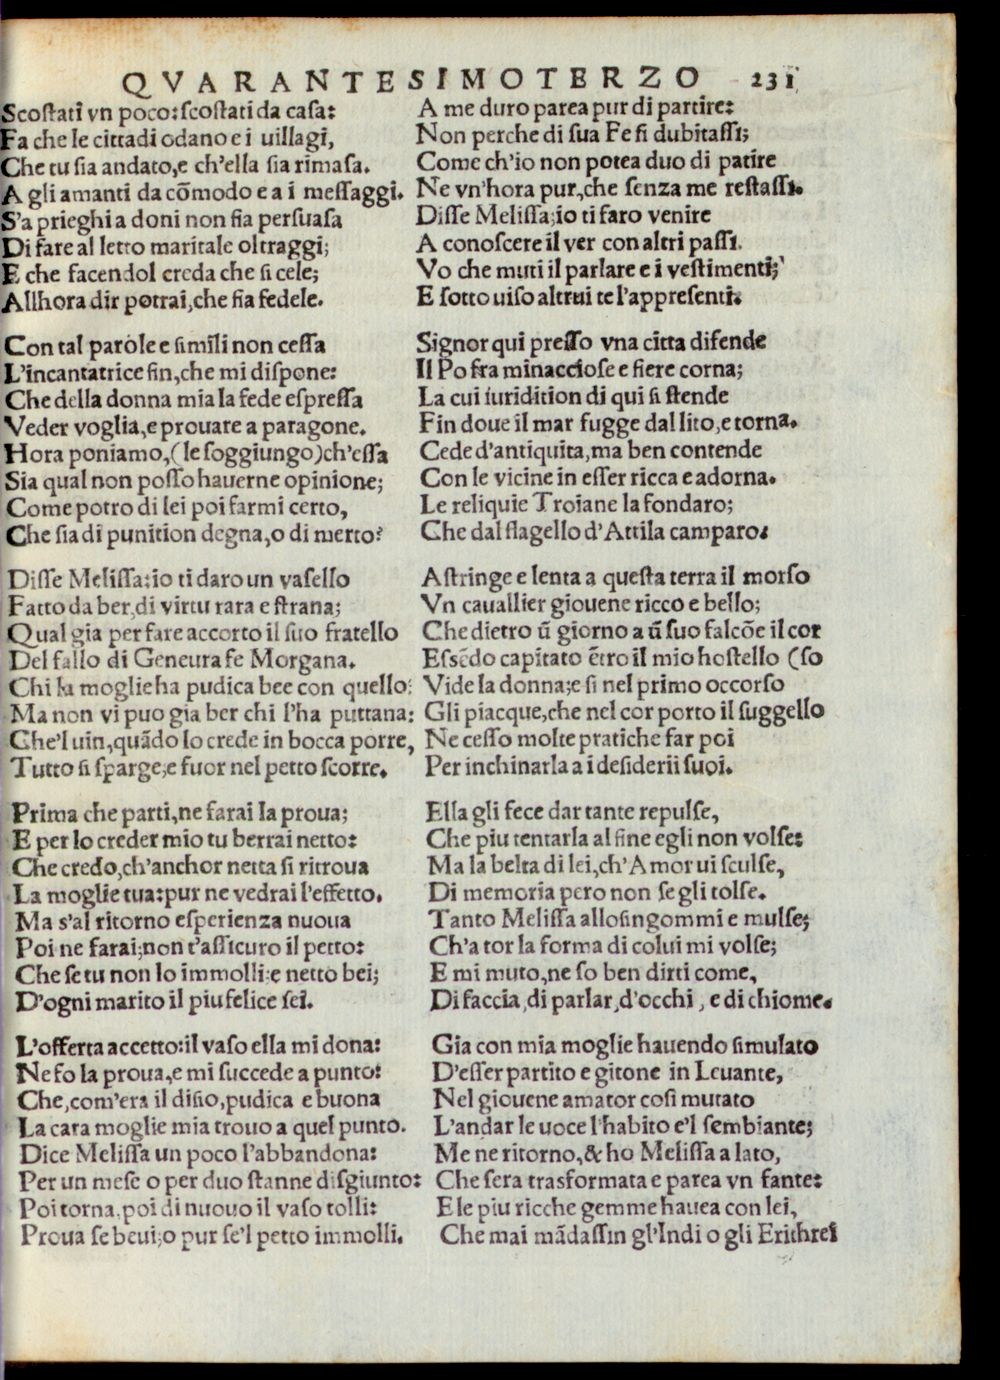 QVARANTESIMOTERZO 231
Scostati vn poco: scostati da casa:
Fa che le cittadi odano e i uillagi,
Che tu sia andato, e ch'ella sia rimasa.
A gli amanti da cōmodo e a i messaggi.
S'a prieghi a doni non fia persuasa
Di fare al letto maritale oltraggi;
E che facendol creda che si cele;
Allhora dir potrai, che fia fedele.
Con tal parole e simili non cessa
L'incantatrice fin, che mi dispone:
Che della donna mia la fede espressa
Veder voglia, e prouare a paragone.
Hora poniamo, (le soggiungo) ch'essa
Sia qual non posso hauerne opinione;
Come potro di lei poi farmi certo,
Che sia di punition degna, o di merto?
Disse Melissa: io ti daro un vasello
Fatto da ber, di virtu rara e strana;
Qual gia per fare accorto il suo fratello
Del fallo di Geneura fe Morgana.
Chi la moglie ha pudica bee con quello:
Ma non vi puo gia ber chi l'ha puttana:
Che'l uin, quādo lo crede in bocca porre,
Tutto si sparge; e fuor nel petto scorre.
Prima che parti, ne farai la proua;
E per lo creder mio tu berrai netto:
Che credo, ch'anchor netta si ritroua
La moglie tua: pur ne vedrai l'effetto.
Ma s'al ritorno esperienza nuoua
Poi ne farai; non t'assicuro il petto:
Che se tu non lo immolli: e netto bei;
D'ogni marito il piu felice sei.
L'offerta accetto: il vaso ella mi dona:
Ne fo la proua, e mi succede a punto:
Che, com'era il disio, pudica e buona
La cara moglie mia trouo a quel punto.
Dice Melissa un poco l'abbandona:
Per un mese o per duo stanne disgiunto:
Poi torna, poi di nuouo il vaso tolli:
Proua se beui; o pur se'l petto immolli.
A me duro parea pur di partire:
Non perche di sua Fe si dubitassi;
Come ch'io non potea duo di patire
Ne vn'hora pur, che senza me restassi.
Disse Melissa; io ti faro venire
A conoscere il ver con altri passi.
Vo che muti il parlare e i vestimenti;
E sotto uiso altrui te l'appresenti.
Signor qui presso vna citta difende
Il Po fra minacciose e fiere corna;
La cui iuridition di qui si stende
Fin doue il mar fugge dal lito, e torna.
Cede d'antiquita, ma ben contende
Con le vicine in esser ricca e adorna.
Le reliquie Troiane la fondaro;
Che dal flagello d'Attila camparo.
Astringe e lenta a questa terra il morso
Vn cauallier giouene ricco e bello;
Che dietro ū giorno a ū suo falcōe il cor
Essēdo capitato ētro il mio hostello (so
Vide la donna; e si nel primo occorso
Gli piacque, che nel cor porto il suggello
Ne cesso molte pratiche far poi
Per inchinarla a i desiderii suoi.
Ella gli fece dar tante repulse,
Che piu tentarla al fine egli non volse:
Ma la belta di lei, ch'Amor ui sculse,
Di memoria pero non se gli tolse.
Tanto Melissa allosingommi e mulse;
Ch'a tor la forma di colui mi volse;
E mi muto, ne so ben dirti come,
Di faccia, di parlar, d'occhi, e di chiome.
Gia con mia moglie hauendo simulato
D'esser partito e gitone in Leuante,
Nel giouene amator cosi mutato
L'andar le uoce l'habito e'l sembiante;
Me ne ritorno, & ho Melissa a lato,
Che sera trasformata e parea vn fante:
E le piu ricche gemme hauea con lei,
Che mai mādassin gl'Indi o gli Erithrei